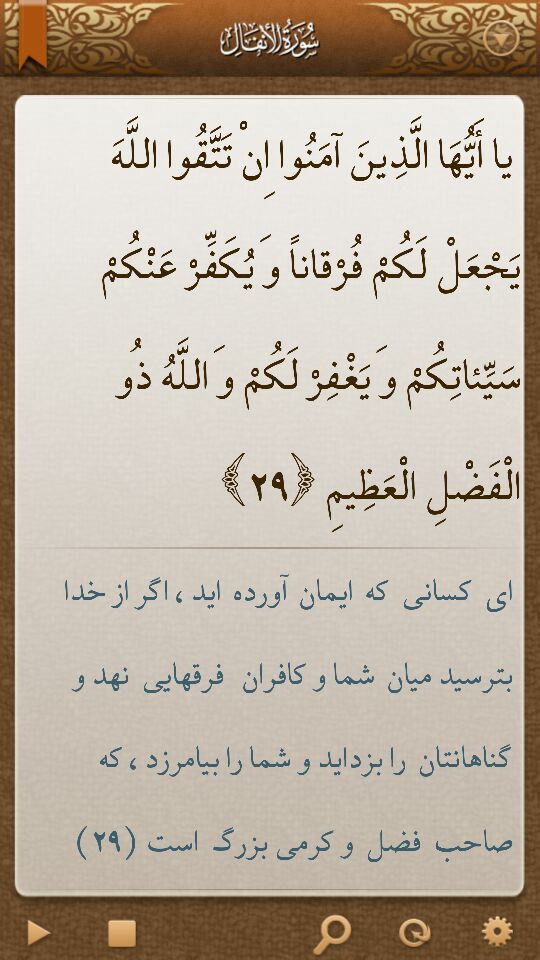 سُورَةُ الأَنفَال
يا أَيُّهَا الَّذِينَ آمَنُوا إِنْ تَتَّقُوا اللَّهَ
يَجْعَلْ لَكُمْ فُرْقاناً وَ يُكَفِّرْ عَنْكُمْ
سَيِّئاتِكُمْ وَ يَغْفِرْ لَكُمْ وَ اللَّهُ ذُو
الْفَضْلِ الْعَظِيمِ ﴿۲۹﴾
ای کسانی که ایمان آورده اید ، اگر از خدا
بترسید میان شما و کافران فرقهایی نهد و
گناهانتان را بزداید و شما را بیامرزد ، که
صاحب فضل و کرمی بزرگ است (۲۹)